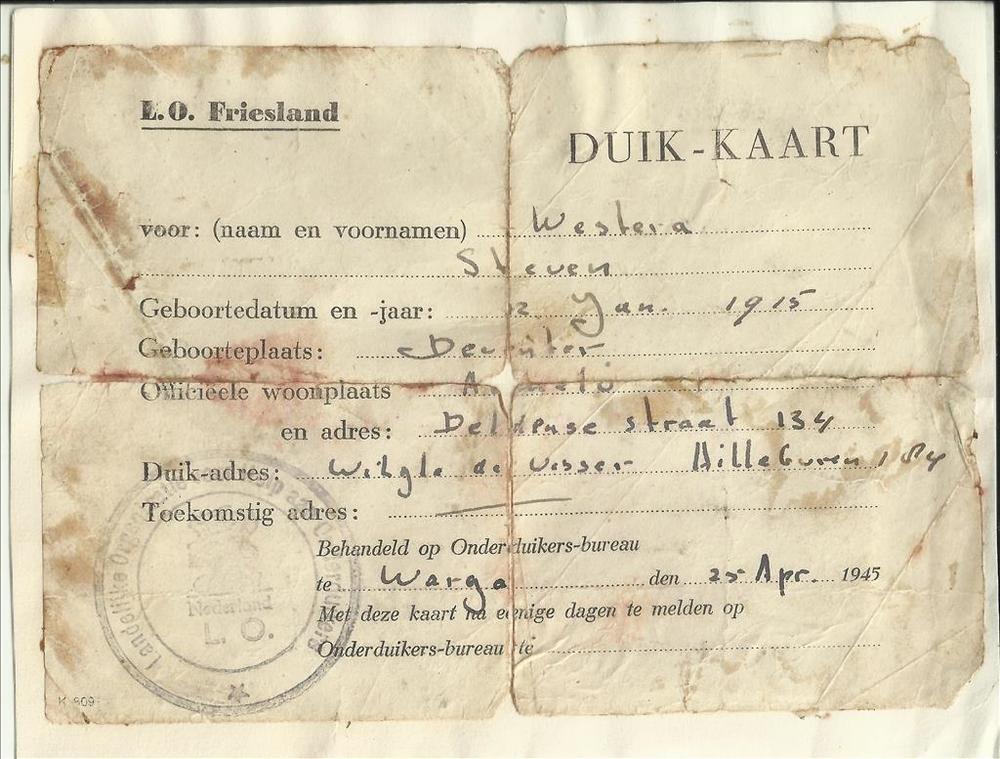 L.O. Friesland
DUIK-KAART
voor: (naam en voornamen) Westera
Steven
Geboortedatum en -jaar: 12 Jan. 1915
Geboorteplaats: Deventer
Officiëele woonplaats Almelo
en adres: Deldense straat 134
Duik-adres: de Visser 184
Toekomstig adres: —
Behandeld op Onderduikers-bureau
te Warga den 25 Apr. 1945
Met deze kaart na eenige dagen te melden op
Onderduikers-bureau te
Landelijke
Nederland
L. O.
K 809